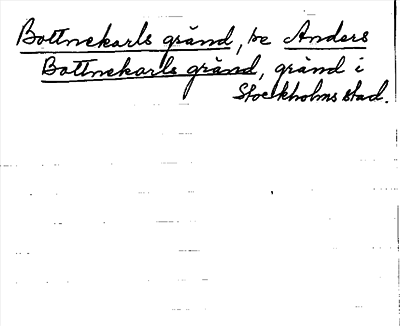 Bottnekarls gränd, se Anders
Bottnekarls gränd, gränd i
Stockholms stad.